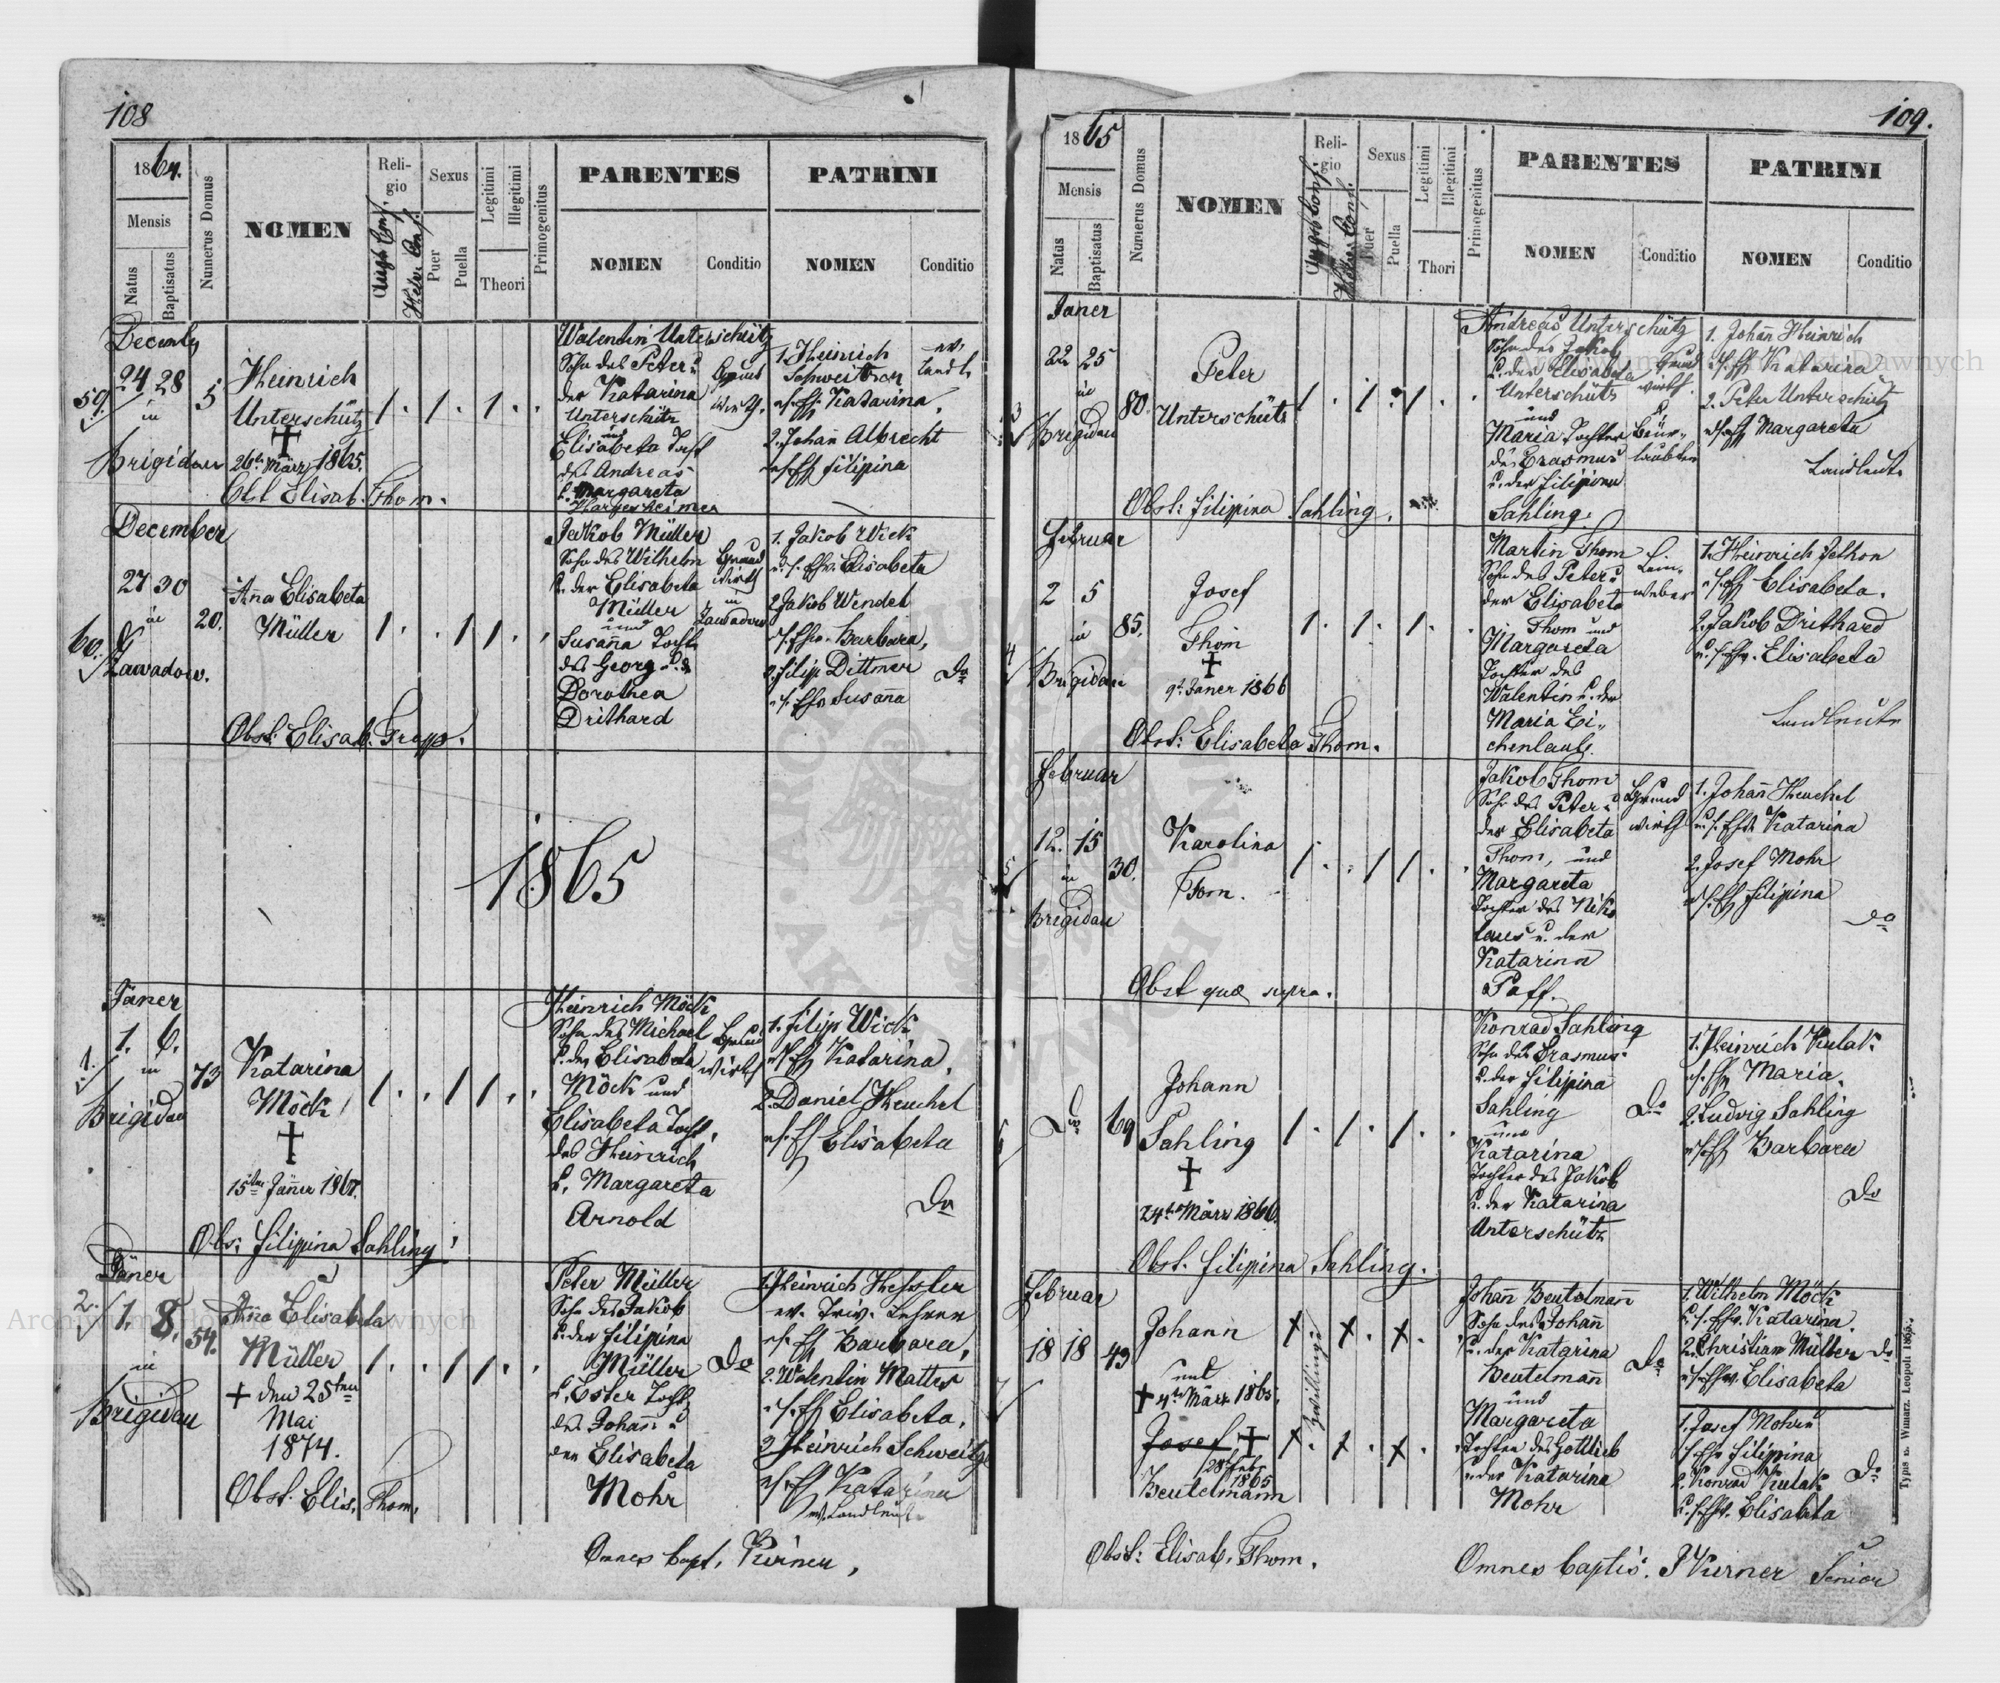 108
1864.
Mensis
Natus
Baptisatus
Numerus Domus
NOMEN
Religio
Augs. Conf.
Helv. Conf.
Sexus
Puer
Puella
Legitimi
Illegitimi
Theori
Primogenitus
PARENTES
NOMEN
Conditio
PATRINI
NOMEN
Conditio
59.
24 28
in
Brigidau
5
Heinrich
Unterschütz
26t März 1865.
Obst Elisab. Thom.
Walentin Unterschütz
Sohn des Peter u
der Katarina
Unterschütz
und
Elisabeta Tocht
des Andreas
u. Margareta
Grund
wirth.
1. Heinrich
Schweitzer
u. s. Ehf. Katarina,
2. Johañ Albrecht
u s Ehf Filipina
ev.
Landl.
December
27 30
in
60.
Zawadow.
20.
Aña Elisabeta
Müller
Obst: Elisab. Tropp.
Jakob Müller
Sohn des Wilhelm
u. der Elisabeta
Müller
und
Susaña Tocht
des Georg u. d.
Dorothea
Drithard
Grund
wirth
in
Zawadow
1. Jakob Wick
u. s. Ehf. Elisabeta
2. Jakob Wendel
u. s. Ehf. Barbara,
3. Filip Dittmer
u. s. Ehf. Susaña
Do
1865
Jäner
1. 6.
in
1.
Brigidau
73
Katarina
Möck
15ten Jäner 1867.
Obs: Filipina Sahling
Heinrich Möck
Sohn des Michael
u. der Elisabeta
Möck und
Elisabeta Tocht,
des Heinrich
u. Margareta
Arnold
Grund
wirth
1. Filip Wick
u s Ehf Katarina,
2. Daniel Heuchel
u s. Ehf Elisabeta
Do
Jäner
2.
1. 8.
in
Brigidau
54.
Aña Elisabeta
Müller
† den 25ten
Mai
1874.
Obst. Elis. Thom.
Peter Müller
Sohn des Jakob
u. der Filipina
Müller
u. Ester Tocht
des Johañ u
der Elisabeta
Mohr
Do
1. Heinrich Hessler
ev. Lehrer
u s. Ehf Barbara,
2. Walentin Mattes
u. s. Ehf Elisabeta,
3 Heinrich Schweitze
u s Ehf Katarina
ev. Landleute
Omnes bapt. Kirner,
109.
1865
Mensis
Natus
Baptisatus
Numerus Domus
NOMEN
Religio
Augs Conf.
Helv. Conf.
Sexus
Puer
Puella
Legitimi
Illegitimi
Thori
Primogenitus
PARENTES
NOMEN
Conditio
PATRINI
NOMEN
Conditio
Janer
22 25
in
3
Brigidau
80.
Peter
Unterschütz
Obst: Filipina Sahling.
Andreas Unterschütz
Sohn des Jakob
u. der Elisabeta
Unterschütz
und
Maria Tochter
des Erasmus
u. der Filipina
Sahling.
Grund
wirth.
Beur-
laubter
1. Johañ Heinrich
u s. Ehf Katarina
2. Peter Unterschütz
u s Ehf Margareta
Landleute
Februar
2 5
in
4
Brigidau
85.
Josef
Thom
9t. Janer 1866
Obst: Elisabeta Thom.
Martin Thom
Sohn des Peter u
der Elisabeta
Thom und
Margareta
Tochter des
Walentin u. der
Maria Ei-
chenlaub.
Lein-
weber
1. Heinrich
u s Ehf Elisabeta.
2. Jakob Drithard
u. s. Ehf. Elisabeta
Landleute
Februar
12. 15
in
5
Brigidau
30.
Karolina
Thom.
Obst quæ supra.
Jakob Thom
Sohn des Peter u
der Elisabeta
Thom, und
Margareta
Tochter des Niko
laus u. der
Katarina
Paff.
Grund
wirth
1. Johañ Heuchel
u. s. Ehf. Katarina
2. Josef Mohr
u s. Ehf Filipina
do
6
Do
69
Johann
Sahling
24t März 1866.
Obst. Filipina Sahling.
Konrad Sahling
Sohn des Erasmus
u. der Filipina
Sahling
und
Katarina
Tochter des Jakob
u. der Katarina
Unterschütz
Do
1. Heinrich Kulak
u s. Ehf Maria.
2. Ludvig Sahling
u s Ehf Barbara
Do
Februar
18 18
7
43
Johann
und
† 4t März 1865.
Josef †
28t Feb.
1865
Beutelmann
Zwillinge
Johañ Beutelmañ
Sohn des Johañ
u. der Katarina
Beutelmañ
und
Margareta
Tochter des Gottlieb
u der Katarina
Mohr
Do
1. Wilhelm Möck
u. s. Ehf. Katarina.
2. Christian Müller
u. s. Ehf. Elisabeta
Do
1. Josef Mohr u
s Ehf Filipina
2. Konrad Kulak
u. s. Ehf. Elisabeta
Do
Typis v. Winiarz. Leopoli 1863.
Obst: Elisab. Thom.
Omnes baptis. J Kirner Senior